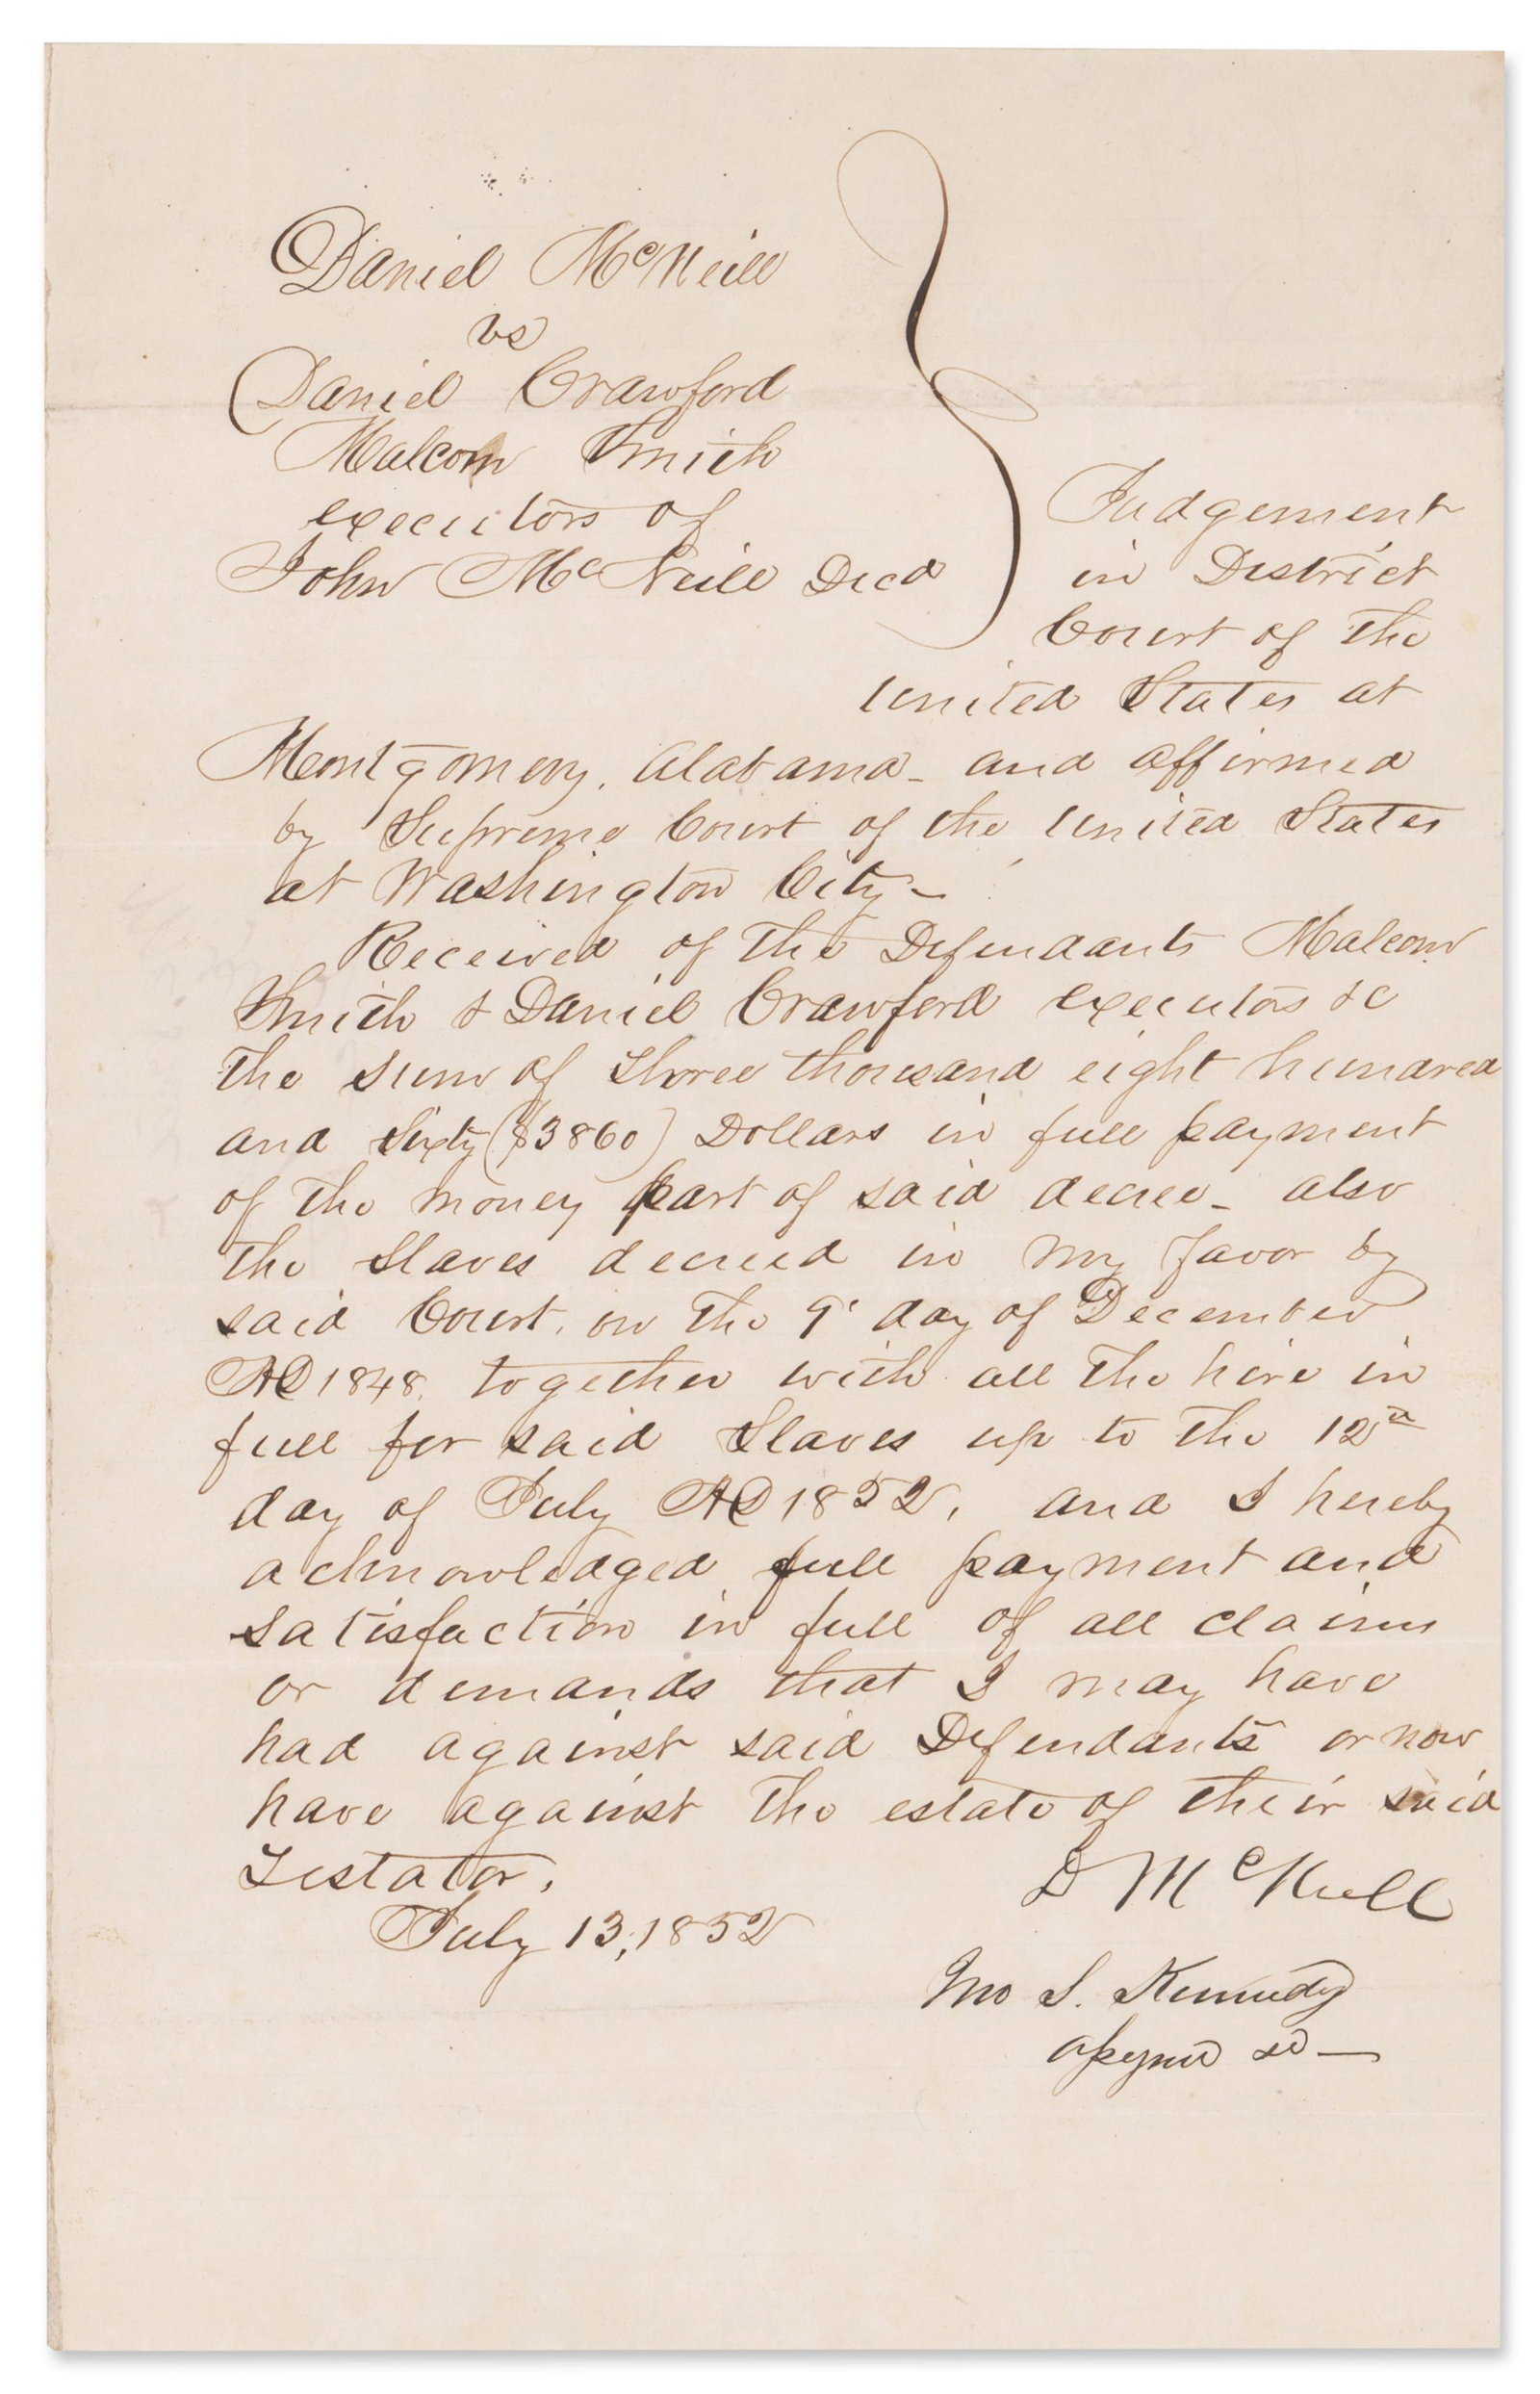 Daniel McNeill
vs
Daniel Crawford
Malcom Smith
executors of
John McNeill Decd
Judgement
in District
Court of the
United States at
Montgomery, Alabama - and affirmed
by Supreme Court of the United States
at Washington City -
Received of the Defendants Malcom
Smith & Daniel Crawford executors &c
the sum of three thousand eight hundred
and sixty ($3860) Dollars in full payment
of the money part of said decree - also
the slaves decreed in my favor by
said Court, on the 9' day of December
AD 1848, together with all the hire in
full for said Slaves up to the 12th
day of July AD 1852, and I hereby
acknowledged full payment and
satisfaction in full of all claims
or demands that I may have
had against said Defendants or now
have against the estate of their said
Testator,
July 13, 1852
D McNeill
Jno S. Kennedy